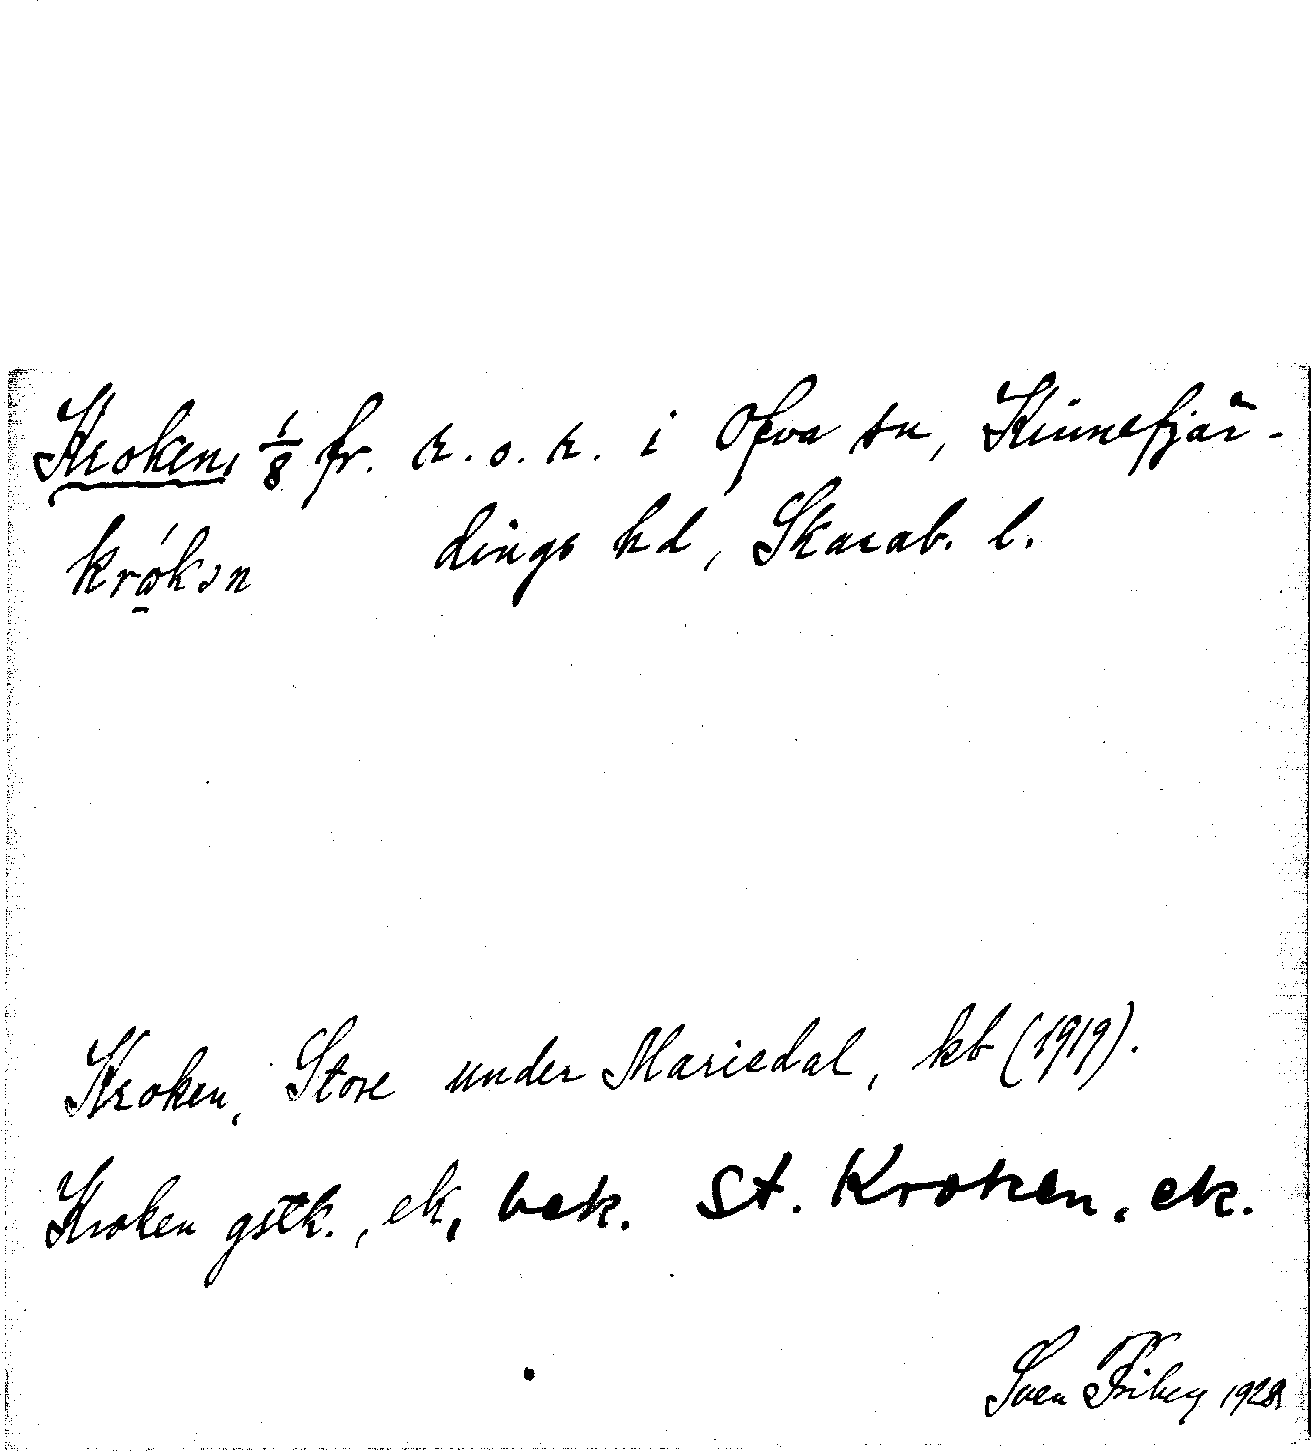 Kroken, 1/8 fr. k. o. k. i Öfva sn, Kinnefjär-
krókən dings hd, Skarab. l.
Kroken, Store under Mariedal, kb (1919).
Kroken gstk., ek, bek. St. Kroken, ek.
Sven Friberg 1928